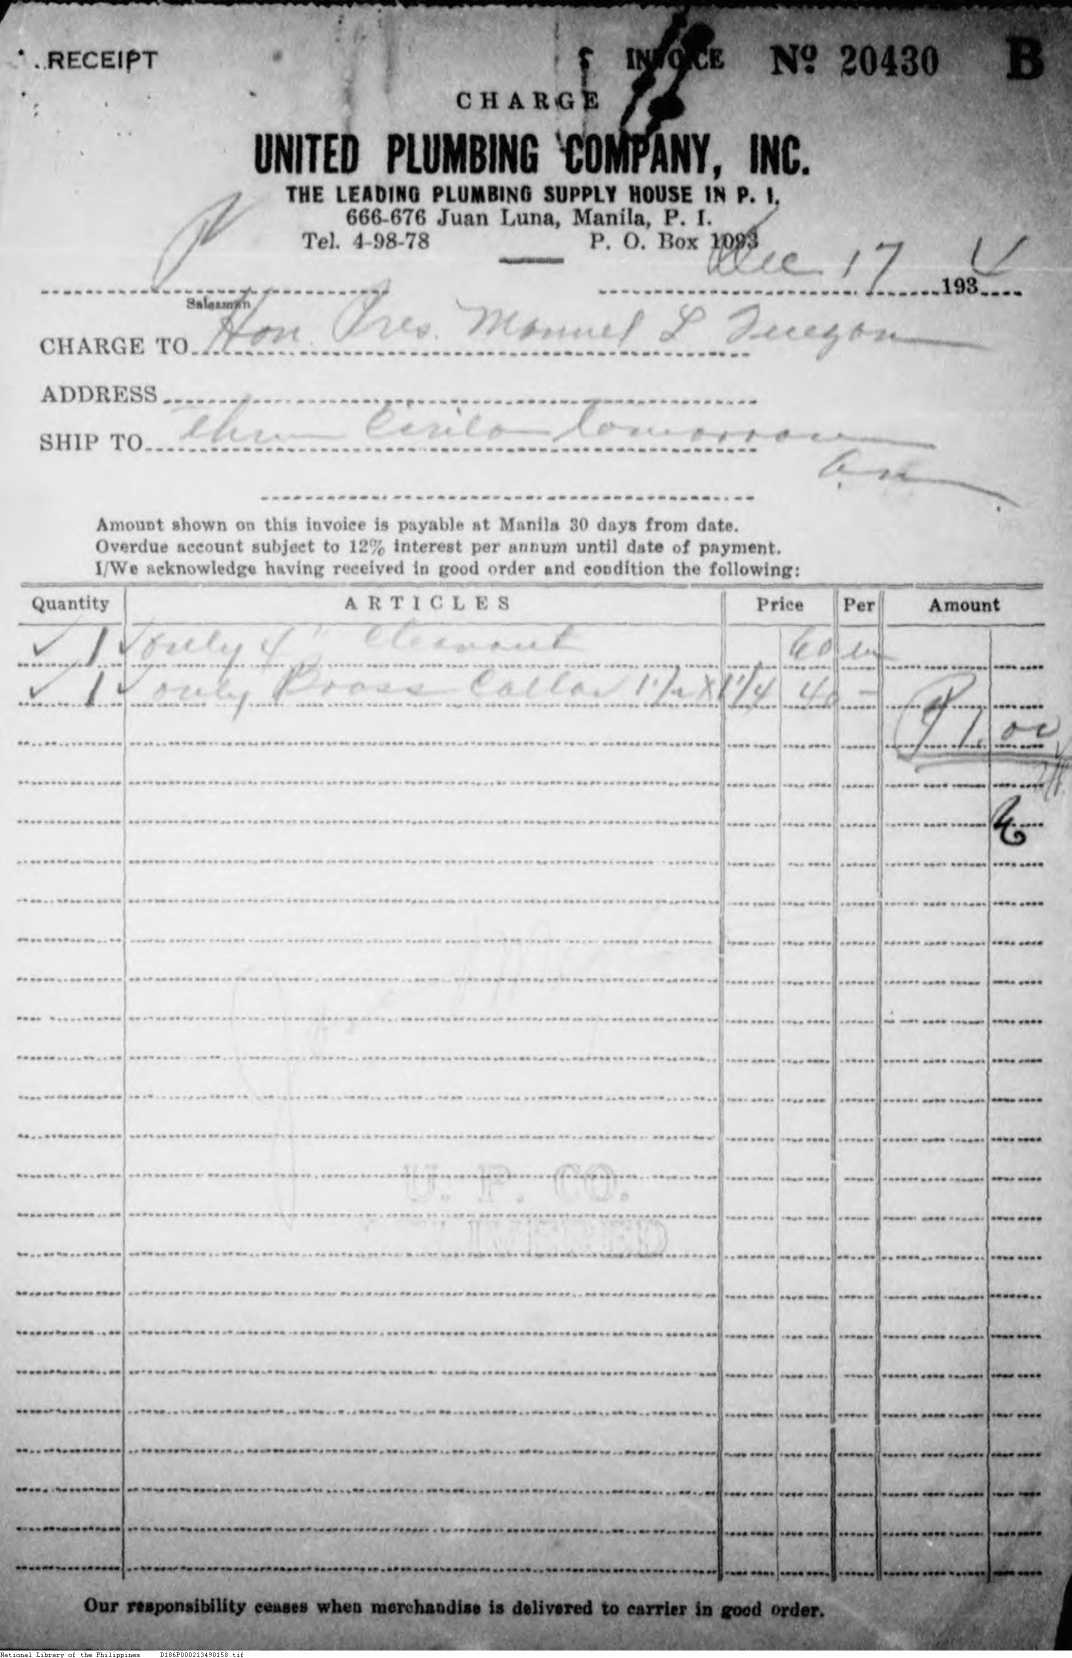 RECEIPT INVOICE Nº 20430 B
CHARGE
UNITED PLUMBING COMPANY, INC.
THE LEADING PLUMBING SUPPLY HOUSE IN P. I.
666-676 Juan Luna, Manila, P. I.
Tel. 4-98-78 P. O. Box 1093
Dec 17 1934
Salesman
CHARGE TO Hon. Pres. Manuel L Quezon
ADDRESS
SHIP TO thru Cirilo tomorrow
Amount shown on this invoice is payable at Manila 30 days from date.
Overdue account subject to 12% interest per annum until date of payment.
I/We acknowledge having received in good order and condition the following:
Quantity ARTICLES Price Per Amount
1 only 4" Cleanout 60
1 only Brass Collar 1 1/2 X 1 1/4 40 -
₱1.00
U. P. CO.
Our responsibility ceases when merchandise is delivered to carrier in good order.
National Library of the Philippines D186P000213490158.tif